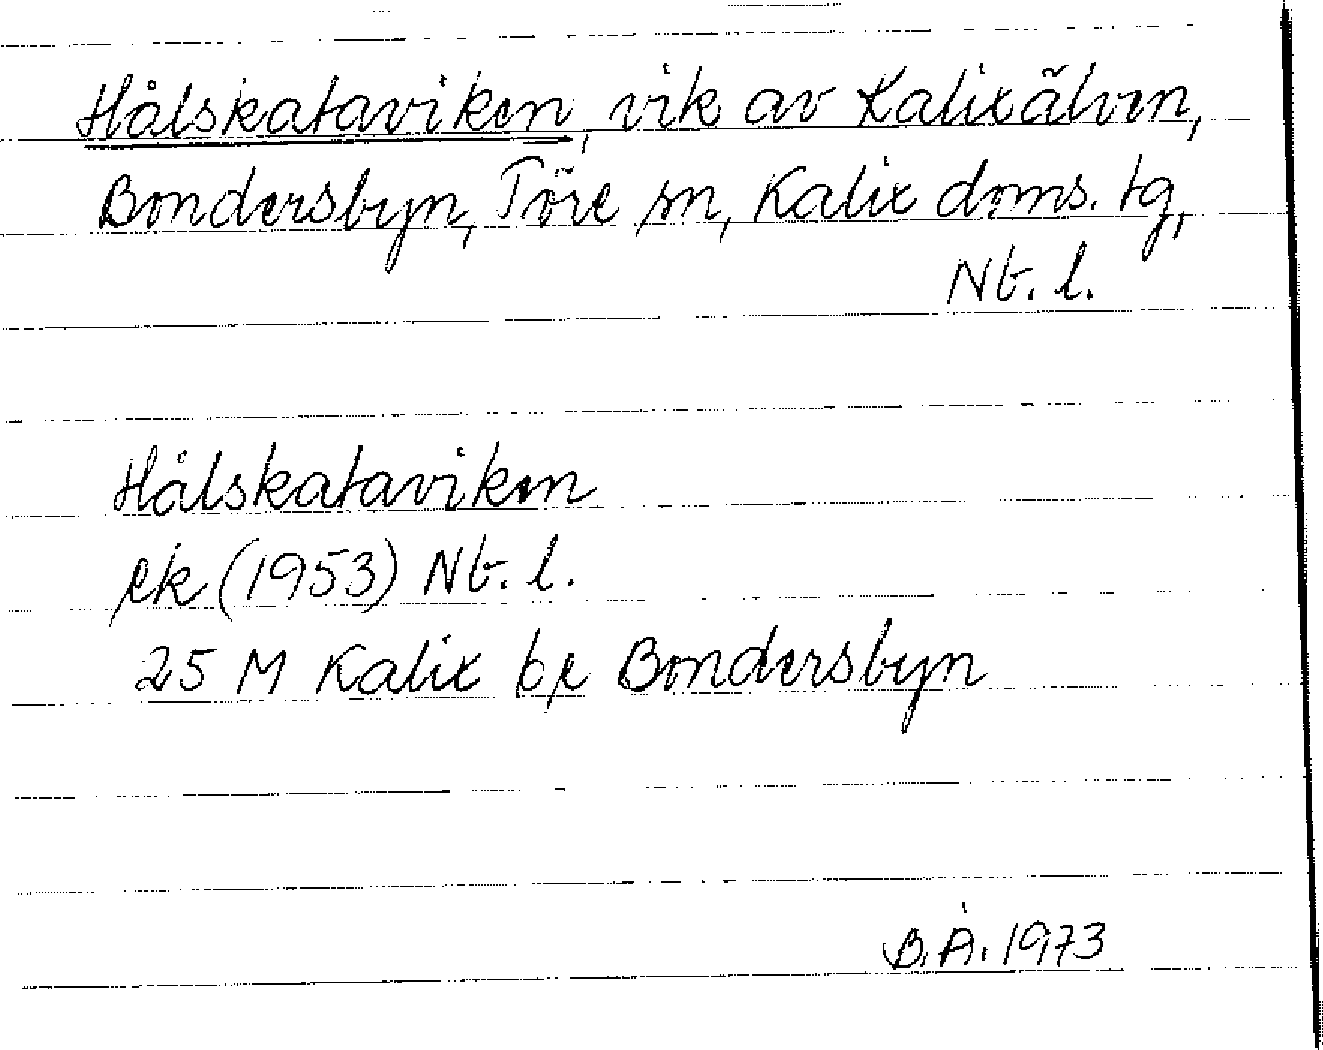 Hålskataviken, vik av Kalixälven,
Bondersbyn, Töre sn, Kalix doms. tg,
Nt. l.
Hålskataviken
ek (1953) Nt. l.
25 M Kalix bl Bondersbyn
B.Å. 1973